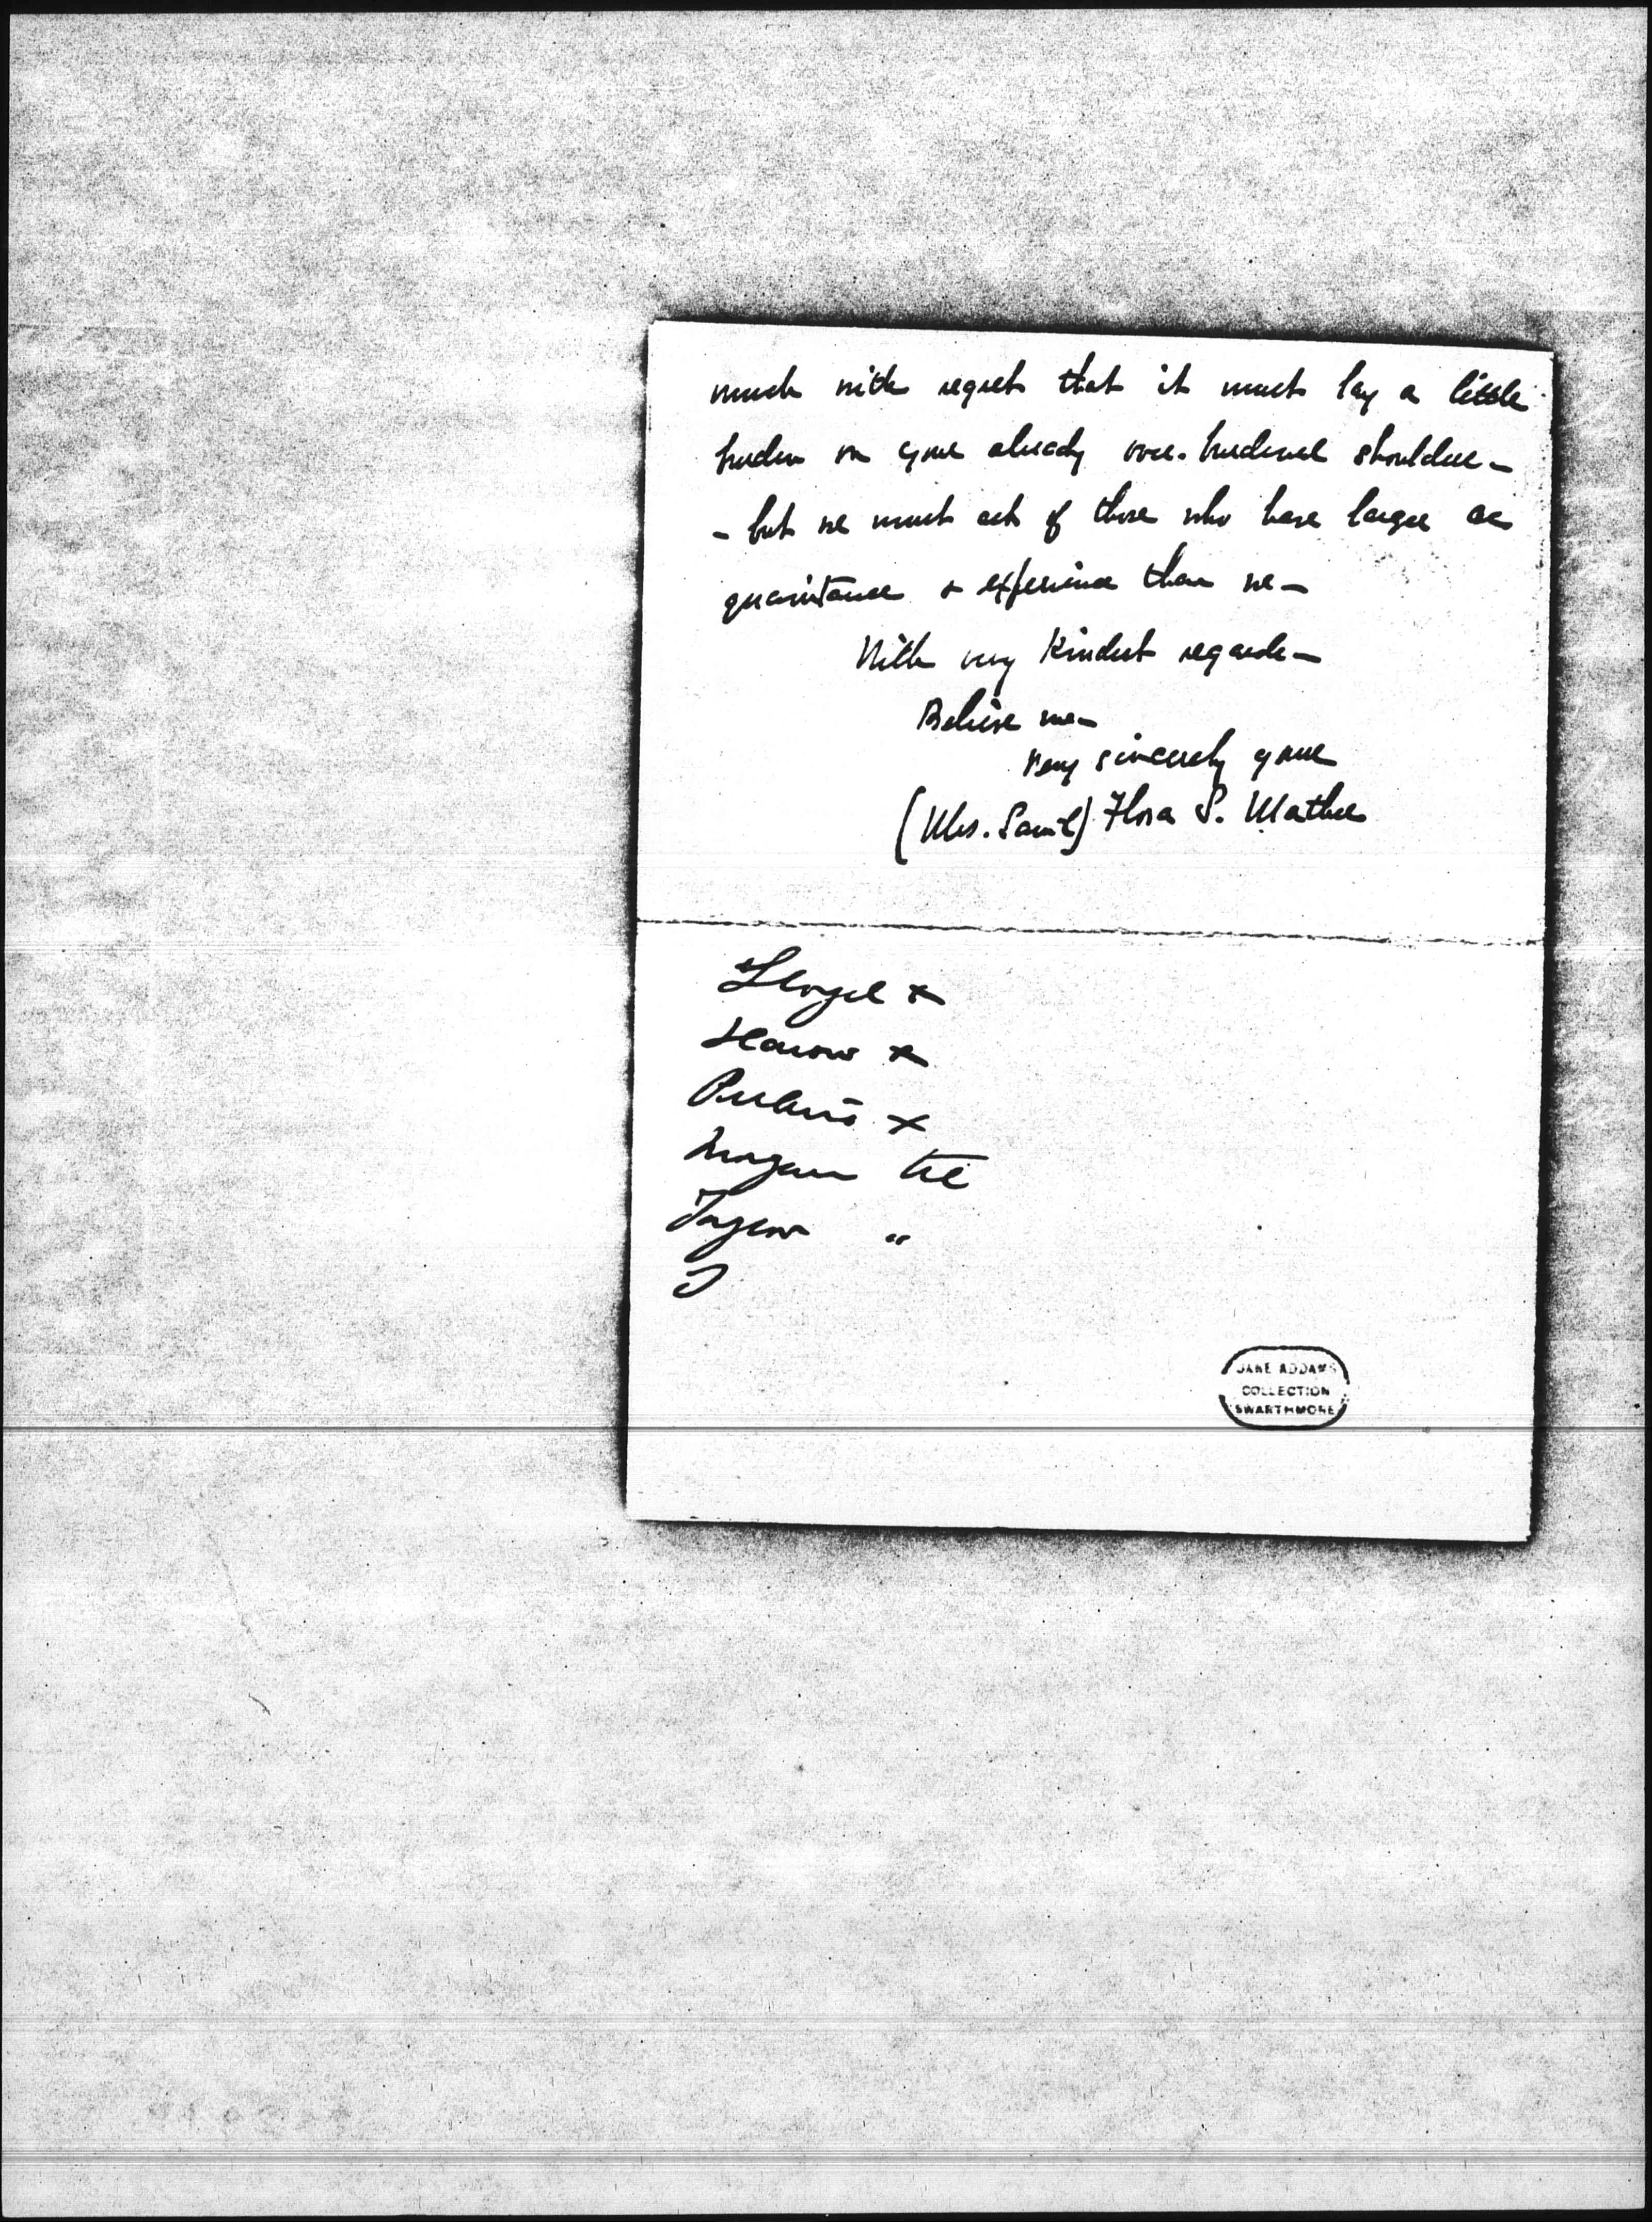 much with regret that it must lay a little
burden on your already over-burdened shoulders –
– but we must ask of those who have larger ac
quaintance & experience than we –
With very kindest regards –
Believe me –
very sincerely yours
(Mrs. Sam'l) Flora S. Mather
Lloyd x
x
x
tel
"
JANE ADDAMS
COLLECTION
SWARTHMORE